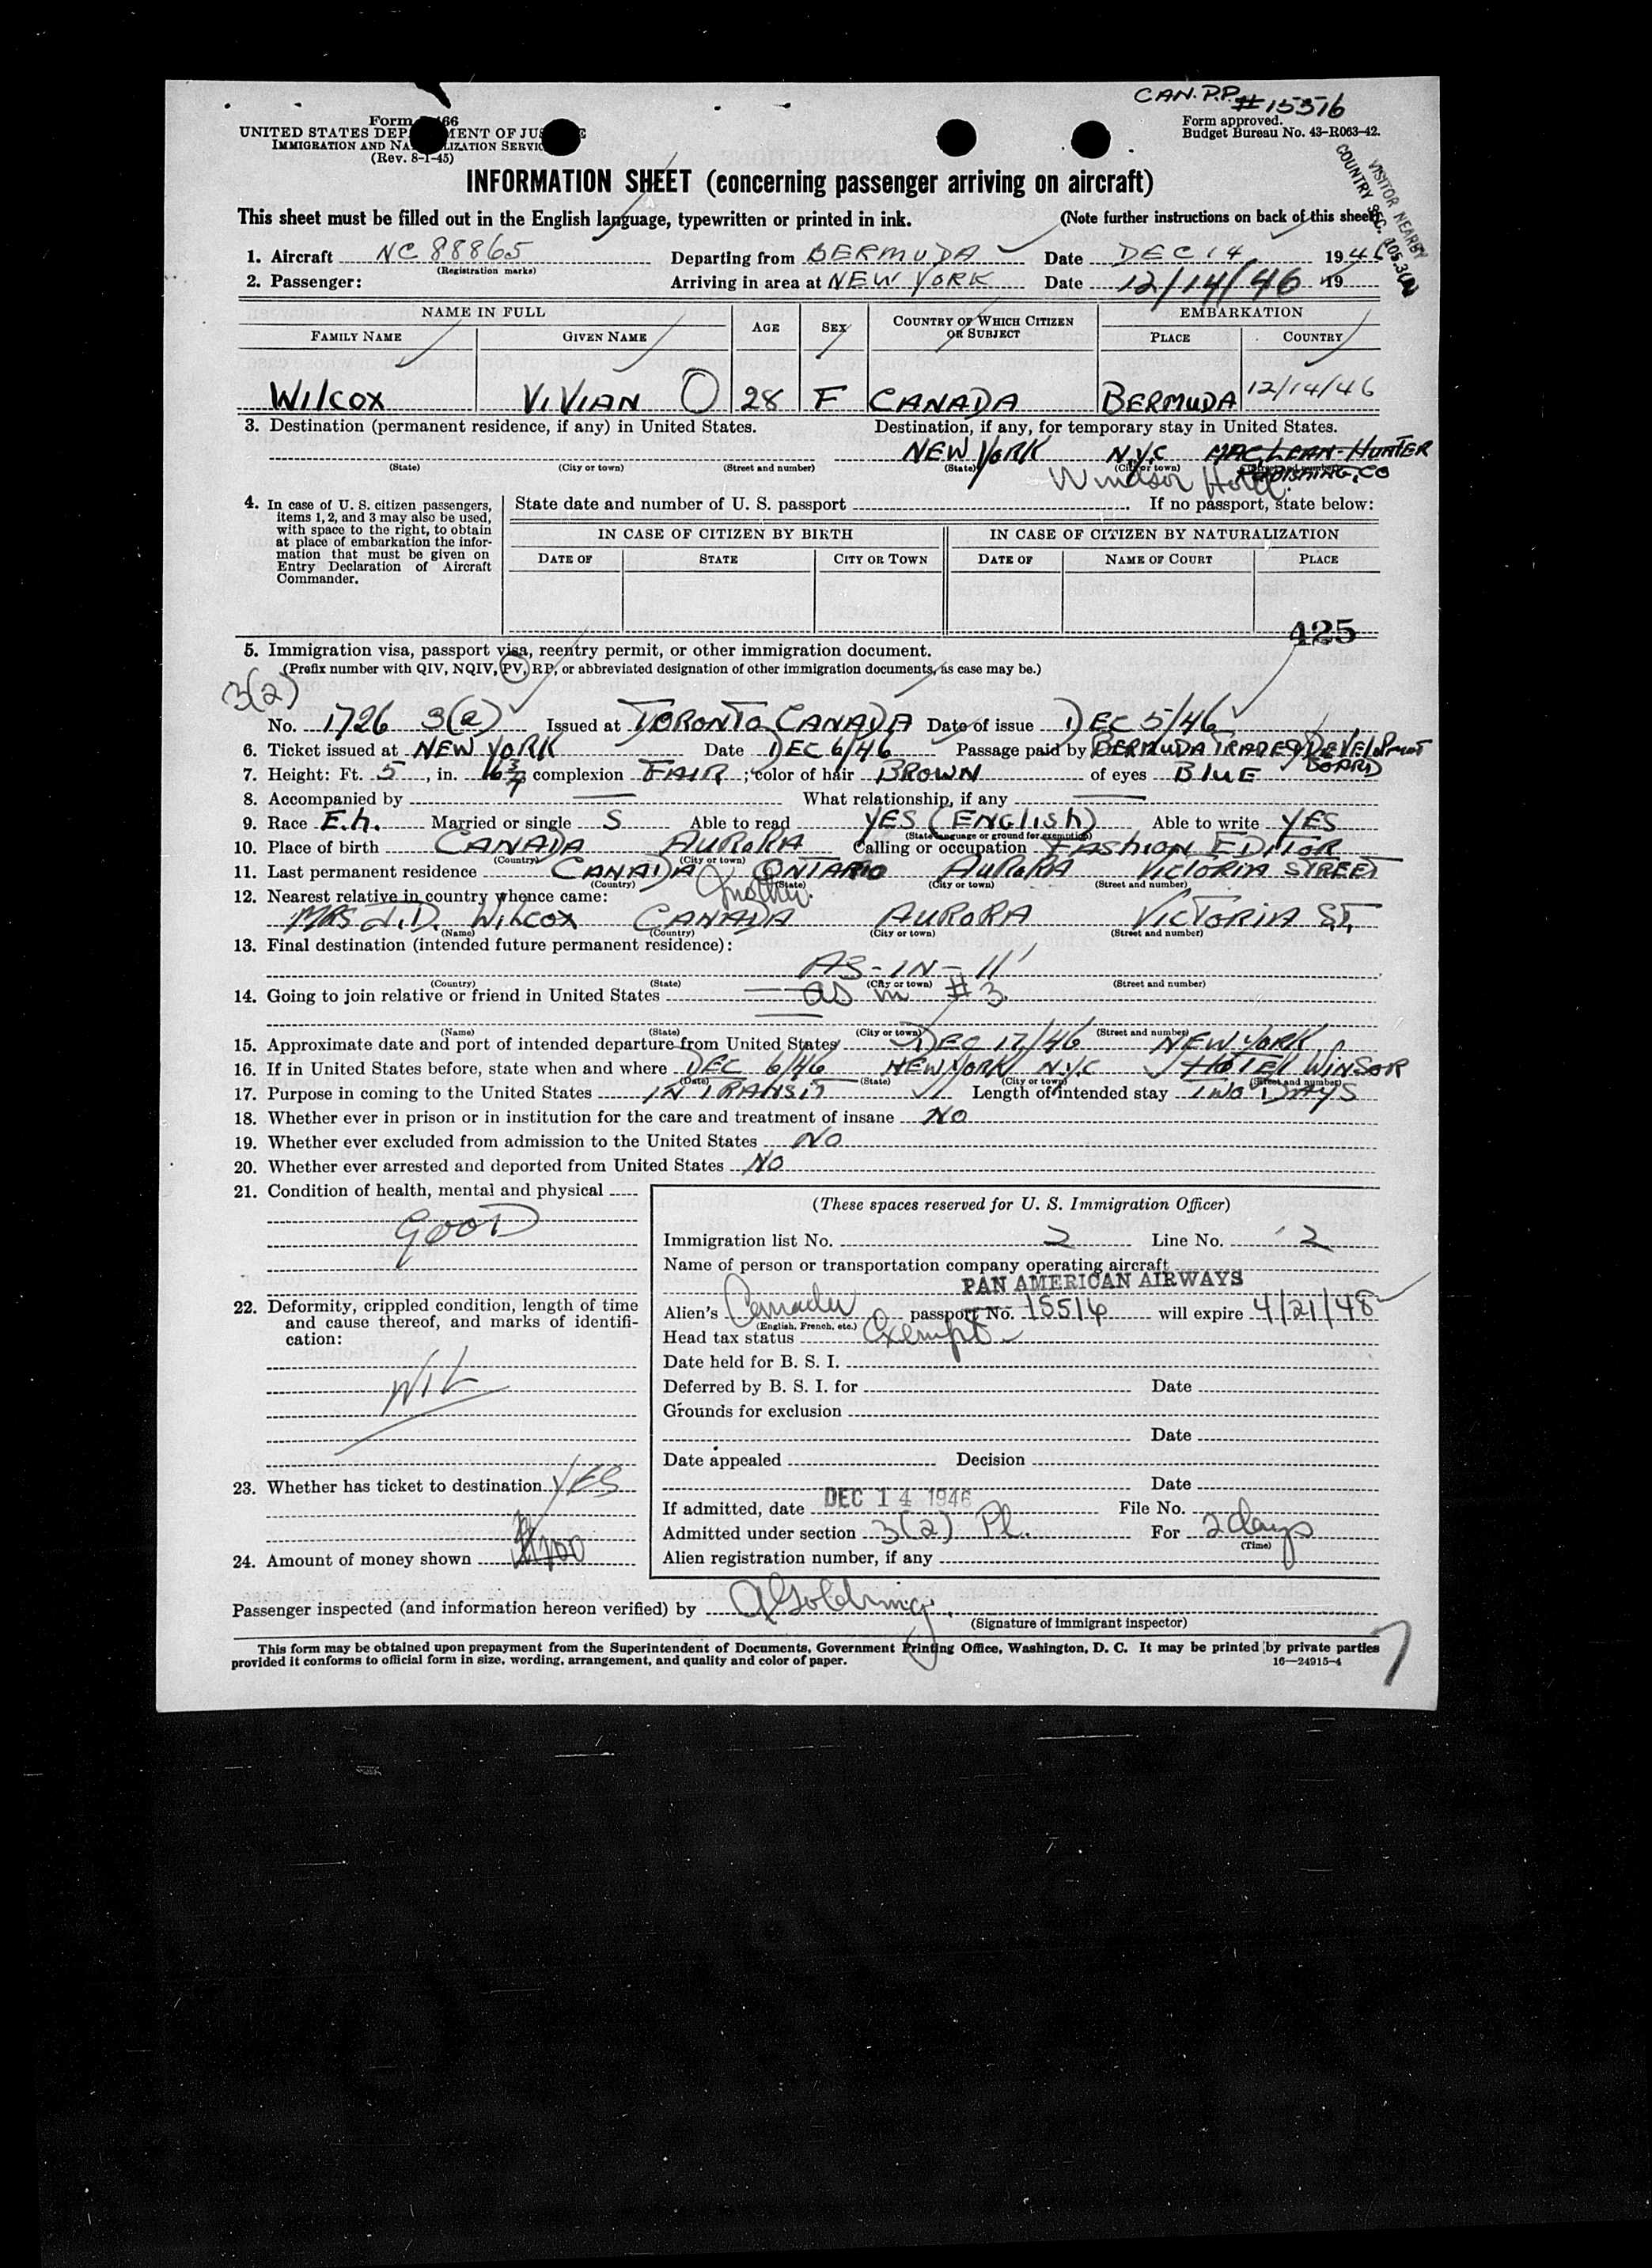 CAN. P.P. #15516
Form 466
UNITED STATES DEP MENT OF JUS E
IMMIGRATION AND NA LIZATION SERVIC
(Rev. 8-1-45)
Form approved.
Budget Bureau No. 43-R063-42.
VISITOR NEARBY
COUNTRY SEC.
INFORMATION SHEET (concerning passenger arriving on aircraft)
This sheet must be filled out in the English language, typewritten or printed in ink. (Note further instructions on back of this sheet)
1. Aircraft NC 88865 Departing from BERMUDA Date DEC 14 1946
(Registration marks)
2. Passenger: Arriving in area at NEW YORK Date 12/14/46 19
NAME IN FULL AGE SEX COUNTRY OF WHICH CITIZEN OR SUBJECT EMBARKATION
FAMILY NAME GIVEN NAME PLACE COUNTRY
WILCOX VIVIAN O 28 F CANADA BERMUDA 12/14/46
3. Destination (permanent residence, if any) in United States. Destination, if any, for temporary stay in United States.
NEW YORK N.Y.C MAC LEAN-HUNTER
(State) (City or town) (Street and number) (State) (City or town)
PUBLISHING CO
Windsor Hotel.
4. In case of U. S. citizen passengers, items 1, 2, and 3 may also be used, with space to the right, to obtain at place of embarkation the information that must be given on Entry Declaration of Aircraft Commander.
State date and number of U. S. passport If no passport, state below:
IN CASE OF CITIZEN BY BIRTH IN CASE OF CITIZEN BY NATURALIZATION
DATE OF STATE CITY OR TOWN DATE OF NAME OF COURT PLACE
425
5. Immigration visa, passport visa, reentry permit, or other immigration document.
(Prefix number with QIV, NQIV, PV, RP, or abbreviated designation of other immigration documents, as case may be.)
3(2)
No. 1726 3(2) Issued at TORONTO CANADA Date of issue DEC 5/46
6. Ticket issued at NEW YORK Date DEC 6/46 Passage paid by BERMUDA TRADE DEVELOPMENT
BOARD
7. Height: Ft. 5, in. 6 3/4 complexion FAIR; color of hair BROWN of eyes BLUE
8. Accompanied by What relationship, if any
9. Race E.h. Married or single S Able to read YES (ENGLISH) Able to write YES
(State language or ground for exemption)
10. Place of birth CANADA AURORA Calling or occupation FASHION EDITOR
(Country) (City or town)
11. Last permanent residence CANADA ONTARIO AURORA VICTORIA STREET
(Country) (State) (City or town) (Street and number)
12. Nearest relative in country whence came: Mother.
MRS J.D. WILCOX CANADA AURORA VICTORIA ST.
(Name) (Country) (City or town) (Street and number)
13. Final destination (intended future permanent residence):
AS-IN-11
(Country) (State) (City or town) (Street and number)
14. Going to join relative or friend in United States as in #3
(Name) (State) (City or town) (Street and number)
15. Approximate date and port of intended departure from United States DEC 17/46 NEW YORK
16. If in United States before, state when and where DEC 6/46 NEW YORK N.Y.C HOTEL WINSOR
(Date) (State) (City or town) (Street and number)
17. Purpose in coming to the United States IN TRANSIT Length of intended stay TWO DAYS
18. Whether ever in prison or in institution for the care and treatment of insane NO
19. Whether ever excluded from admission to the United States NO
20. Whether ever arrested and deported from United States NO
21. Condition of health, mental and physical
GOOD
22. Deformity, crippled condition, length of time and cause thereof, and marks of identification:
NIL
23. Whether has ticket to destination YES
24. Amount of money shown
(These spaces reserved for U. S. Immigration Officer)
Immigration list No. 2 Line No. 2
Name of person or transportation company operating aircraft
PAN AMERICAN AIRWAYS
Alien's Canada passport No. 15516 will expire 4/21/48
(English, French, etc.)
Head tax status Exempt
Date held for B. S. I.
Deferred by B. S. I. for Date
Grounds for exclusion
Date
Date appealed Decision
Date
If admitted, date DEC 14 1946 File No.
Admitted under section 3(2) Pl. For 2 days
(Time)
Alien registration number, if any
Passenger inspected (and information hereon verified) by A Goldring
(Signature of immigrant inspector)
This form may be obtained upon prepayment from the Superintendent of Documents, Government Printing Office, Washington, D. C. It may be printed by private parties
provided it conforms to official form in size, wording, arrangement, and quality and color of paper. 16—24915-4
7